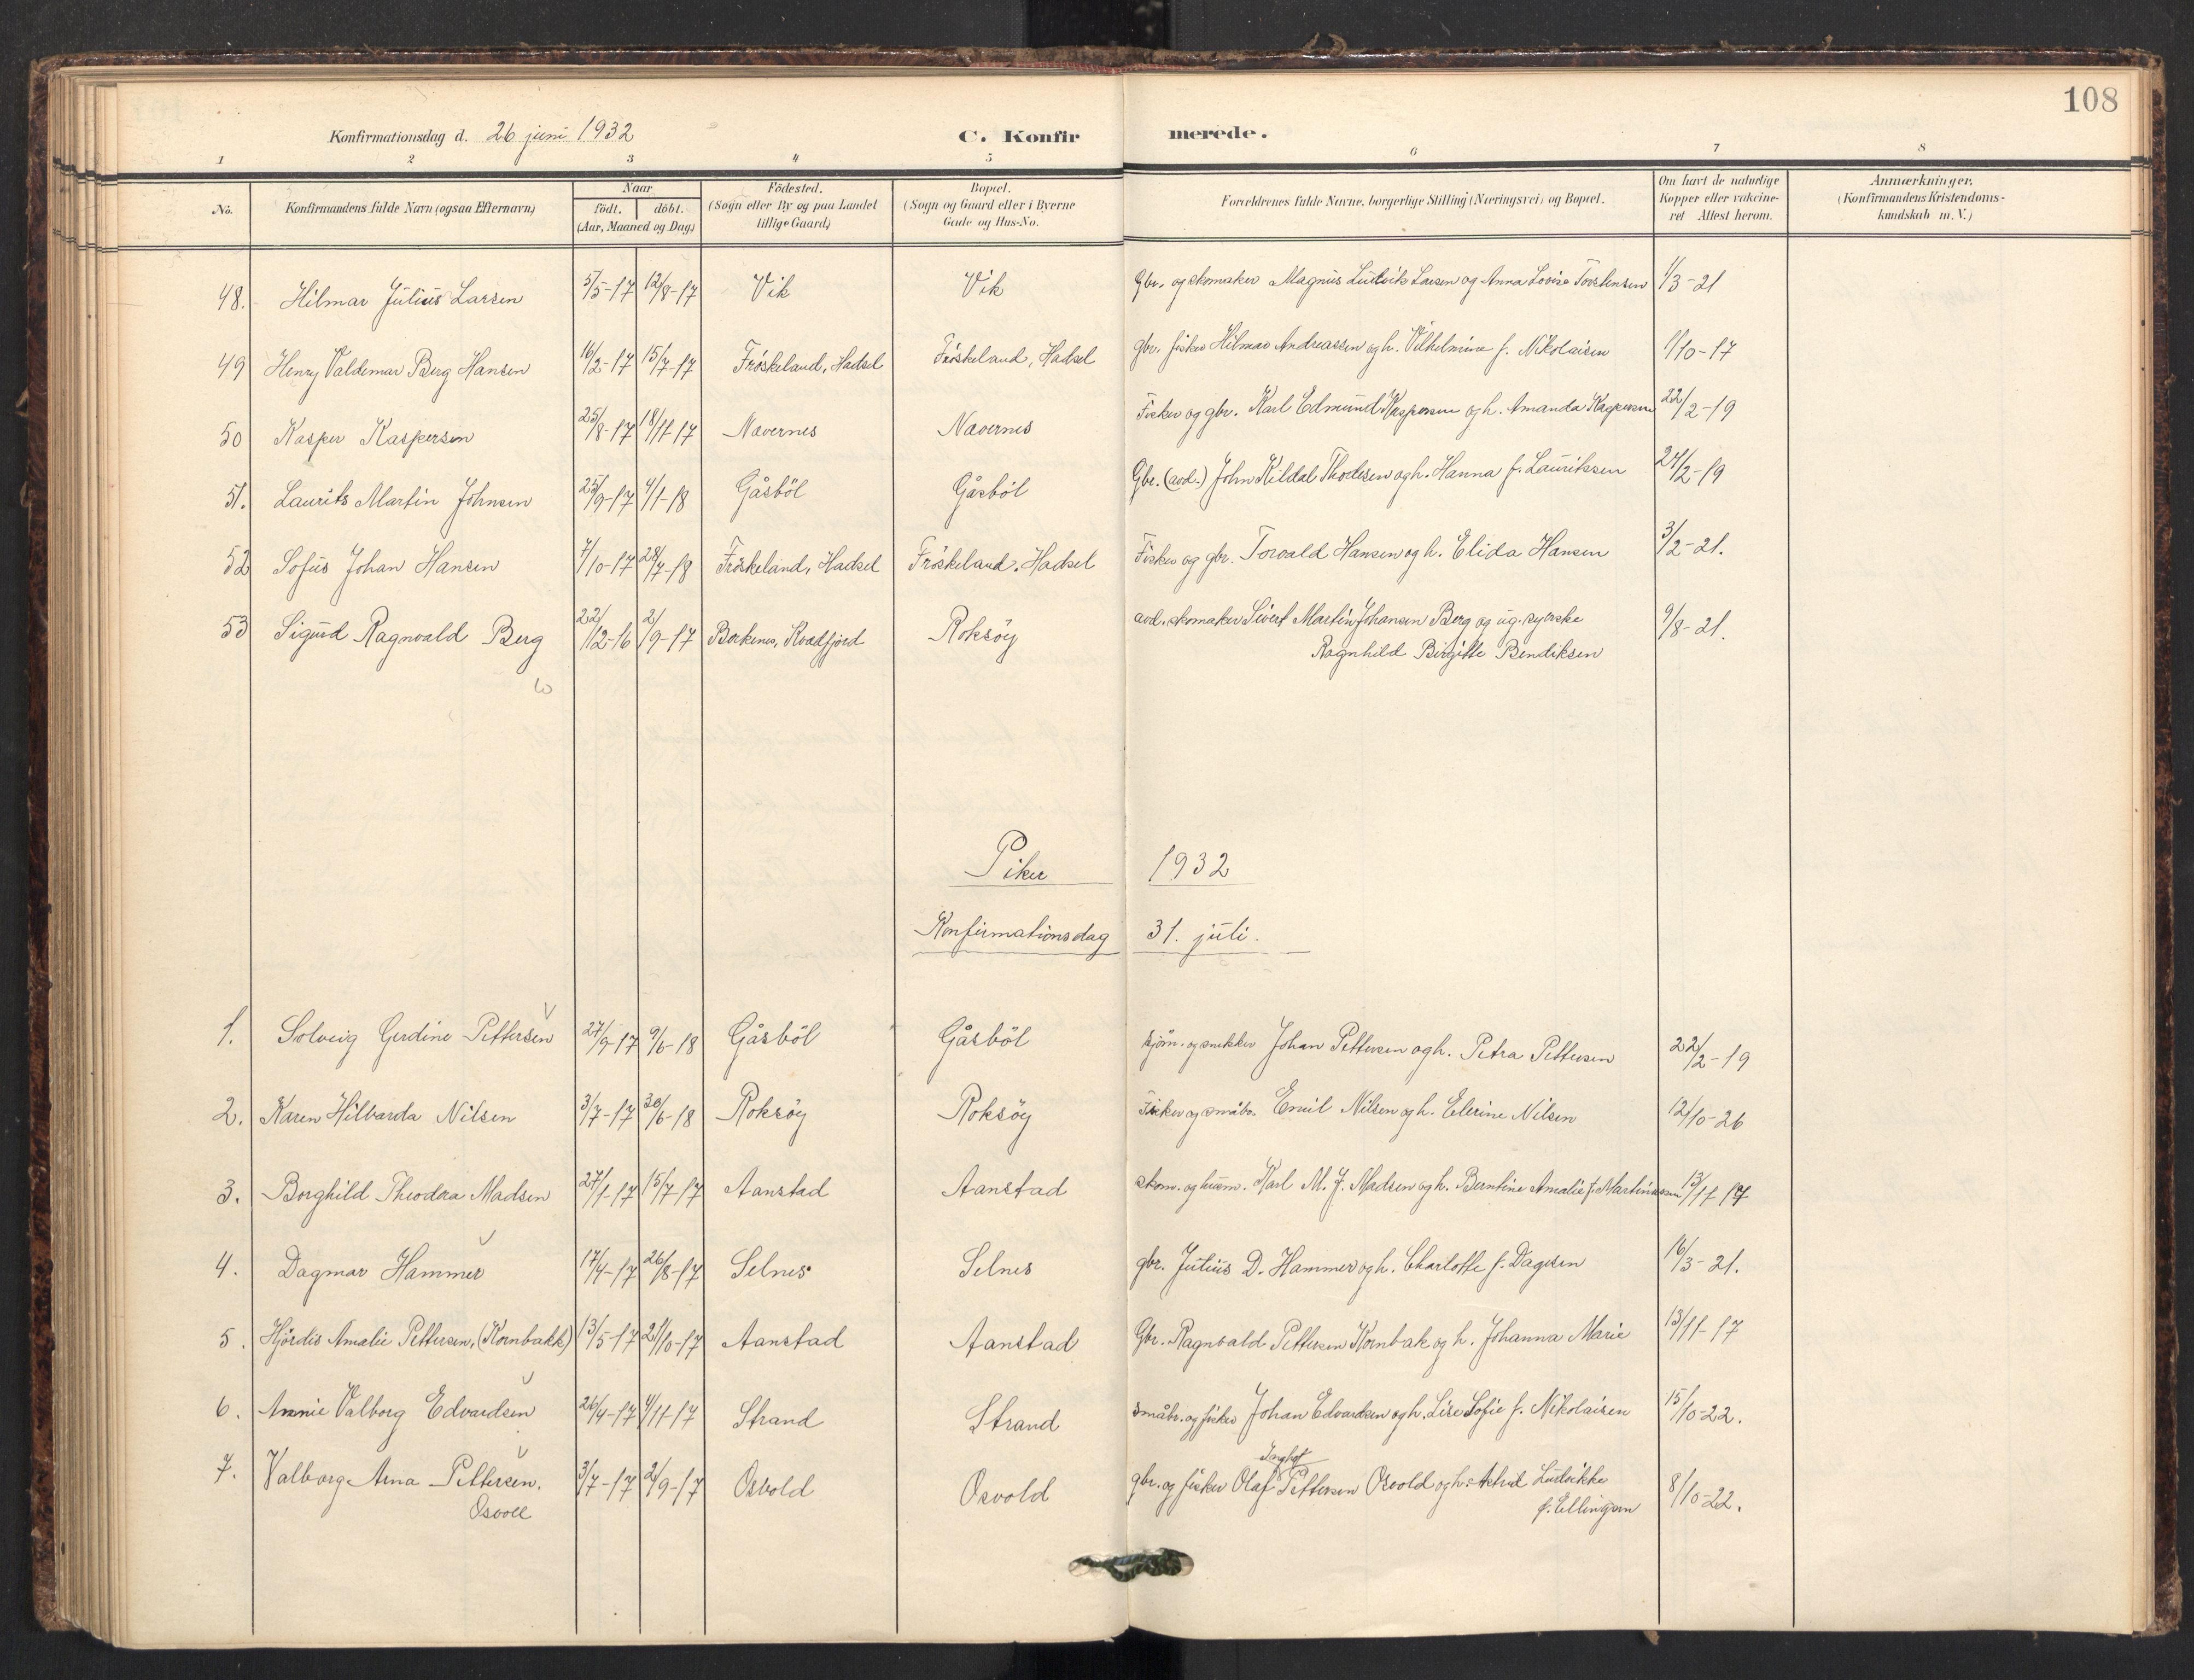 108
Konfirmationsdag d. 26 juni 1932 C. Konfirmerede.
1 2 3 4 5 6 7 8
No. Konfirmandens fulde Navn (ogsaa Efternavn) Naar født. døbt. (Aar, Maaned og Dag) Födested. (Sogn eller By og paa Landet tillige Gaard) Bopæl. (Sogn og Gaard eller i Byerne Gade og Hus-No. Forældrenes fulde Navne, borgerlige Stilling (Næringsvei) og Bopæl. Om havt de naturlige Kopper eller vakcineret Attest herom. Anmærkninger. (Konfirmandens Kristendomskundskab m. V.)
48. Hilmar Julius Larsen 5/5-17 12/8-17 Vik Vik Gbr. og skomaker Magnus Ludvik Larsen og Anna Lovise Torstensen 1/3-21
49 Henry Valdemar Berg Hansen 16/2-17 15/7-17 Fröskeland, Hadsel Fröskeland, Hadsel gbr. fisker Hilmar Andreassen og h. Vilhelmine f. Nikolaisen 1/10-17
50 Kasper Kaspersen 25/8-17 18/11-17 Navernes Navernes Fisker og gbr. Karl Edmund Kaspersen og h. Amanda Kaspersen 22/2-19
51. Laurits Martin Johnsen 25/9-17 4/1-18 Gåsböl Gåsböl Gbr. (avd.) John Kildal Thodesen og h. Hanna f. Lauritssen 24/2-19
52 Sofus Johan Hansen 7/10-17 28/7-18 Fröskeland, Hadsel Fröskeland, Hadsel Fisker og gbr. Torvald Hansen og h. Elida Hansen 3/2-21.
53 Sigud Ragnvald Berg 22/12-16 2/9-17 Borkenes, Kvædfjord Roksöy avd. skomaker Sivert Martin Johansen Berg og ug. syerske 9/8-21.
Ragnhild Birgitte Bendiksen
Piker 1932
Konfirmationsdag 31. juli.
1. Solveig Gerdine Pettersen 27/9-17 9/6-18 Gåsböl Gåsböl sjöm. og snekker Johan Pettersen og h. Petra Pettersen 22/2-19
2. Karen Hilbarda Nilsen 3/7-17 30/6-18 Roksöy Roksöy Fisker og småbr. Emil Nilsen og h. Elerine Nilsen 12/10-26
3. Borghild Theodora Madsen 27/1-17 15/7-17 Aanstad Aanstad skom. og husm. Karl M. J. Madsen og h. Berntine Amalie f. Martinussen 13/11-17
4. Dagmar Hammer 17/4-17 26/8-17 Selnes Selnes gbr. Julius D. Hammer og h. Charlotte f. Dagesen 16/3-21.
5. Hjördis Amalie Pettersen, (Kornbakk) 13/5-17 21/10-17 Aanstad Aanstad Gbr. Ragnvald Pettersen Kornbak og h. Johanna Marie 13/11-17
6. Annie Valborg Edvardsen 26/4-17 4/11-17 Strand Strand småbr. og fisker Johan Edvardsen og h. Lise Sofie f. Nikolaisen 15/10-22.
7. Valborg Arna Pettersen. 3/7-17 2/9-17 Osvold Osvold gbr. og fisker Olaf Pettersen Osvold og h. Astrid Ludvikke 8/10-22.
Osvoll f. Ellingsen